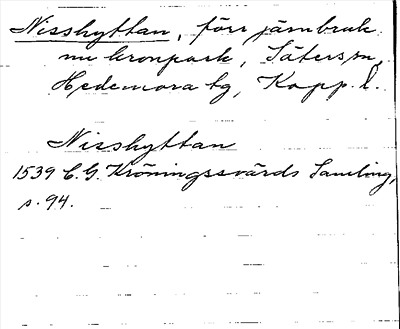 Nisshyttan, förr järnbruk
nu kronpark, Säters sn,
Hedemora tg, Kopp. l.
Nisshyttan
1539 C. G. Kröningssvärds Samling,
s. 94.